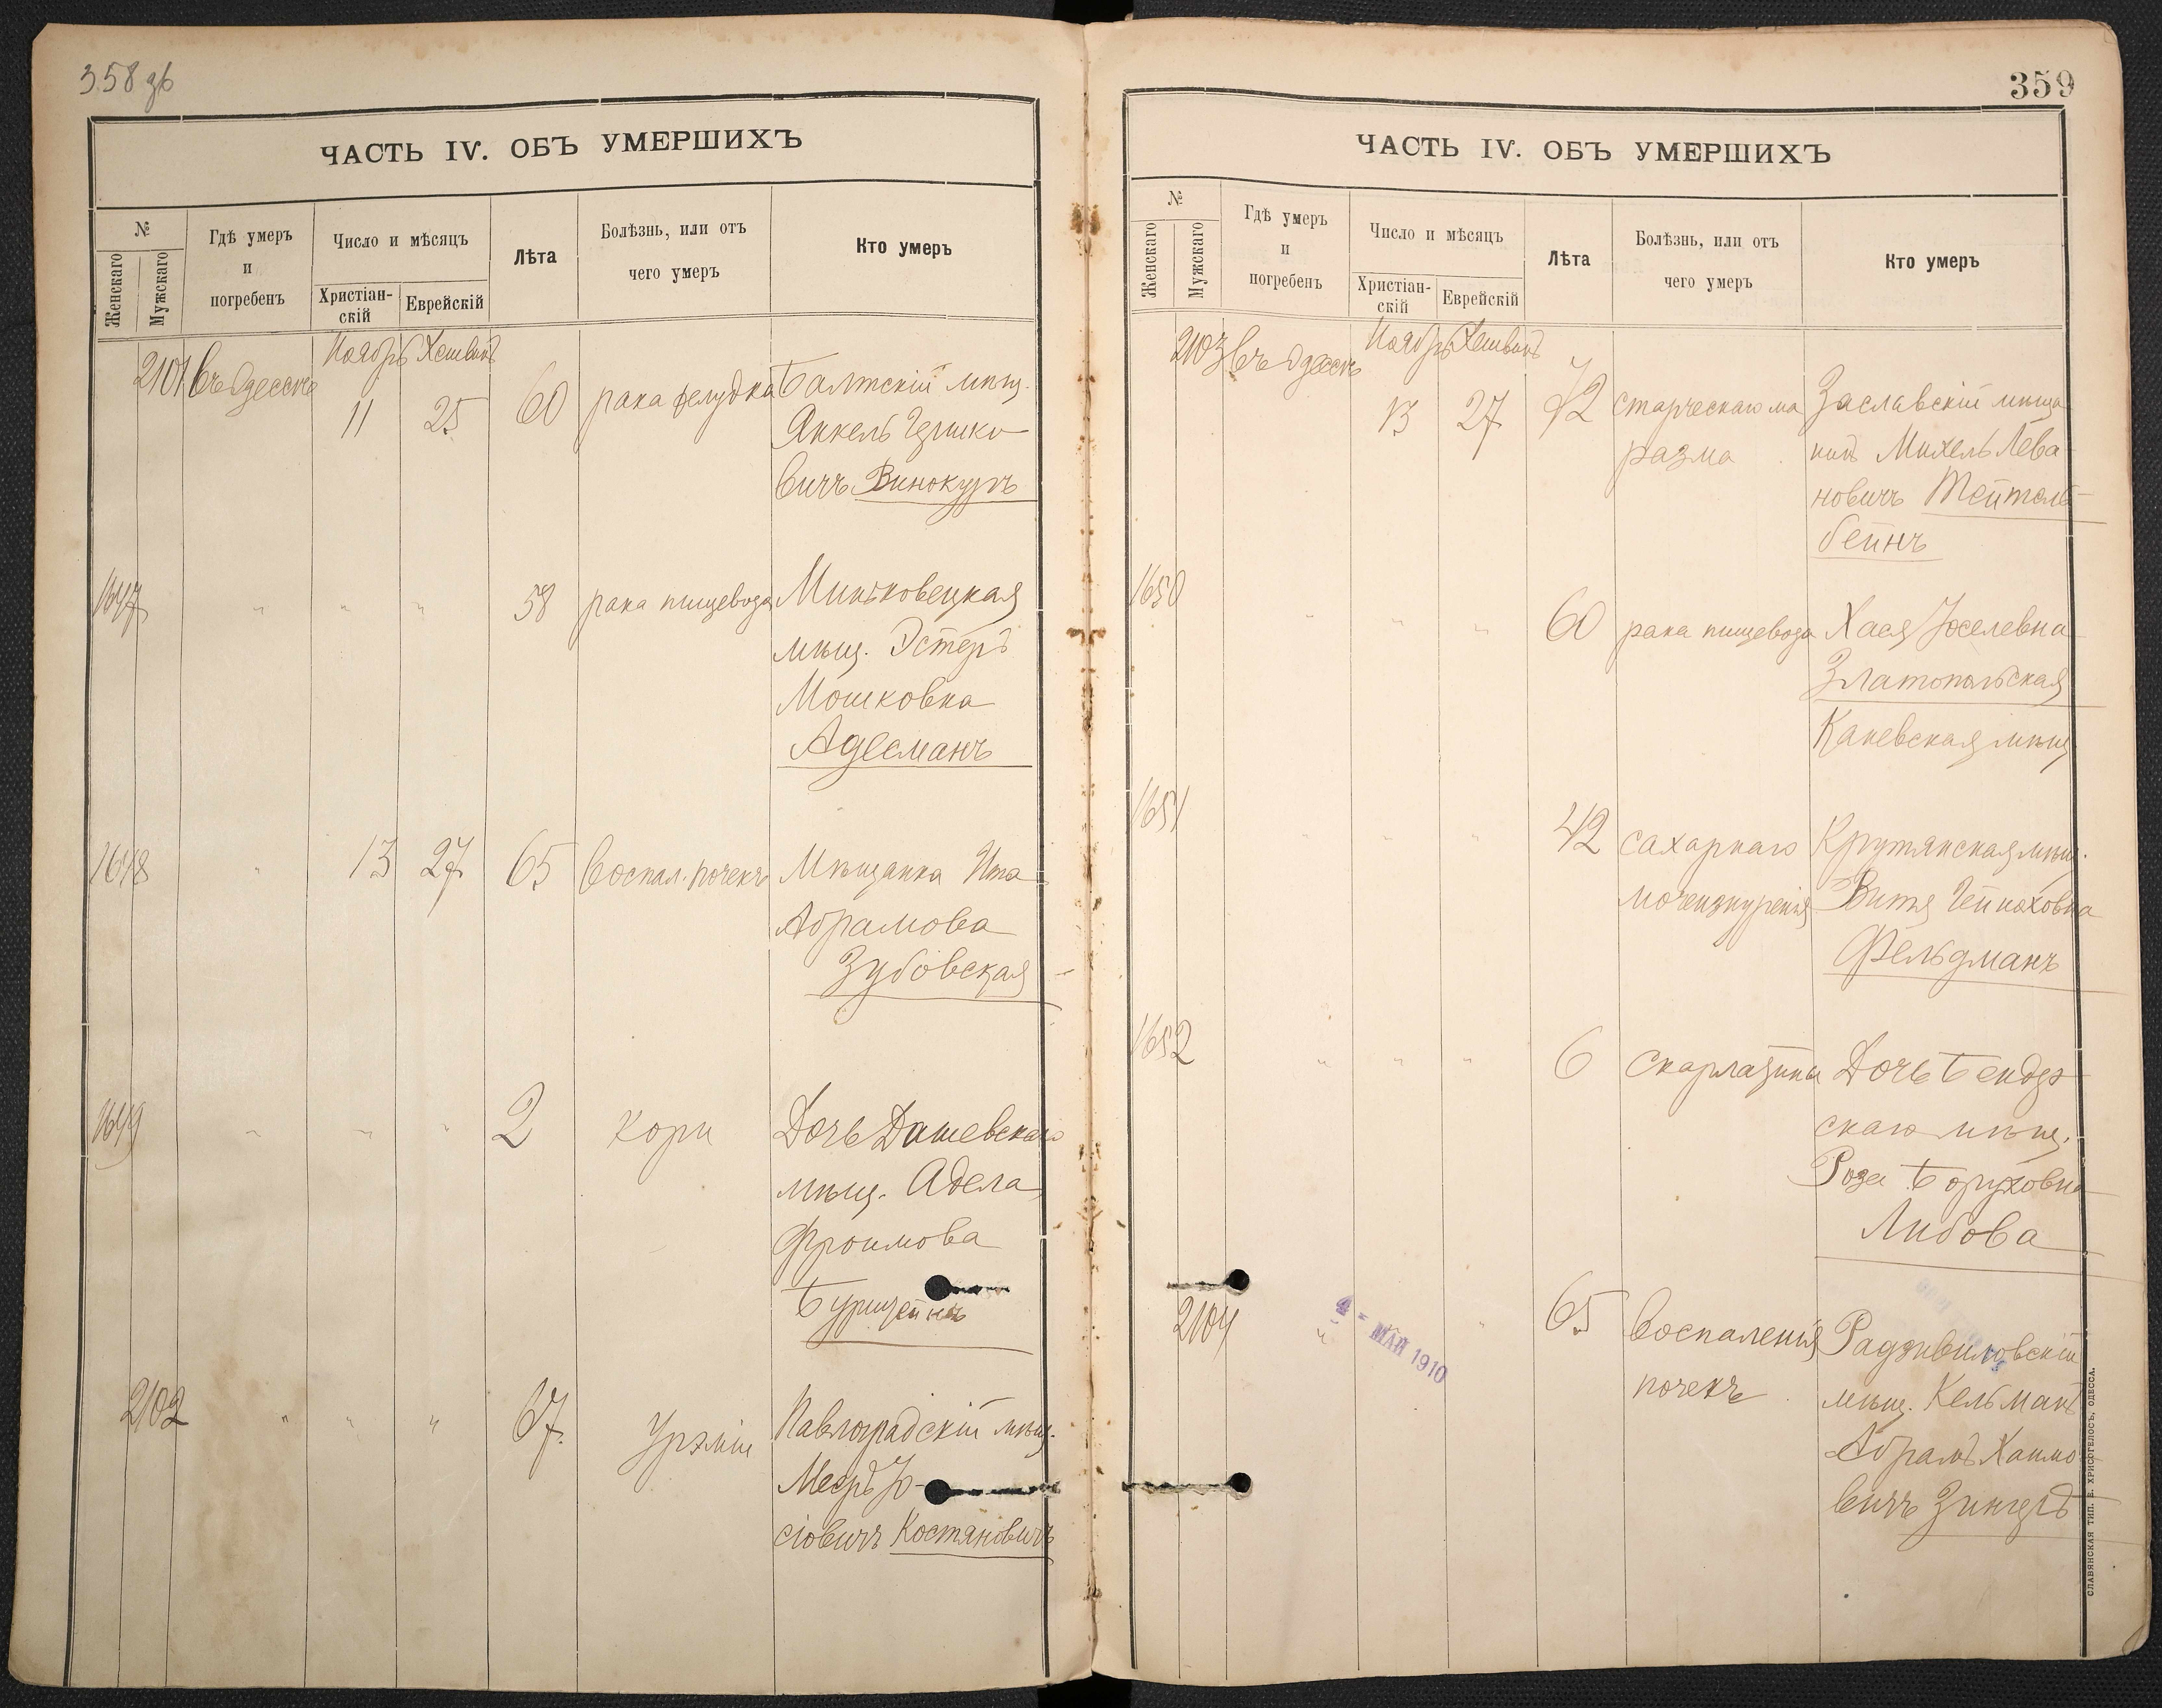 358 об
ЧАСТЬ IV. ОБЪ УМЕРШИХЪ
№
Женскаго
Мужскаго
Гдѣ умеръ
и
погребенъ
Число и мѣсяцъ
Христіан-
скій
Еврейскій
Лѣта
Болѣзнь, или отъ
чего умеръ
Кто умеръ
Ноябрь Хешванъ
2101 въ Одессѣ 11 25 60 рака желудка Балтскій мѣщ.
Янкель Ицко
вичъ Винокуръ
1647 " " " 58 рака пищевода Миньковецкая
мѣщ. Эстеръ
Мошковна
Адесманъ
1648 " 13 27 65 воспал. почекъ Мѣщанка Ита
Абрамова
Зубовская
1649 " " " 2 кори Дочь Дашевскаго
мѣщ. Адела
Фроимова
Бурштейнъ
2102 " " " 67 Урэміи Павлоградскій мѣщ.
Мееръ Ио-
сіовичъ Костяновичъ
359
ЧАСТЬ IV. ОБЪ УМЕРШИХЪ
№
Женскаго
Мужскаго
Гдѣ умеръ
и
погребенъ
Число и мѣсяцъ
Христіан-
скій
Еврейскій
Лѣта
Болѣзнь, или отъ
чего умеръ
Кто умеръ
Ноябрь Хешванъ
2103 въ Одессѣ 13 27 72 старческаго ма Заславскій мѣща
разма нинъ Михель Лева
новичъ Тейтель
бейнъ
1650 " " " 60 рака пищевода Хася Іоселевна
Златопольская
Каневская мѣщ
1651 " " " 42 сахарнаго Крутянская мѣщ.
мочеизнуренія Витя Гейноховна
Фельдманъ
1652 " " " 6 скарлатины Дочь Бендер
скаго мѣщ.
Роза Боруховна
Либова
2104 " " 65 воспаленія Радзивиловскій
почекъ мѣщ. Кельманъ
Абрамъ Хаимо
вичъ Зингеръ
4 - МАЙ 1910
СЛАВЯНСКАЯ ТИП. Е. ХРИСОГЕЛОСЪ, ОДЕССА.